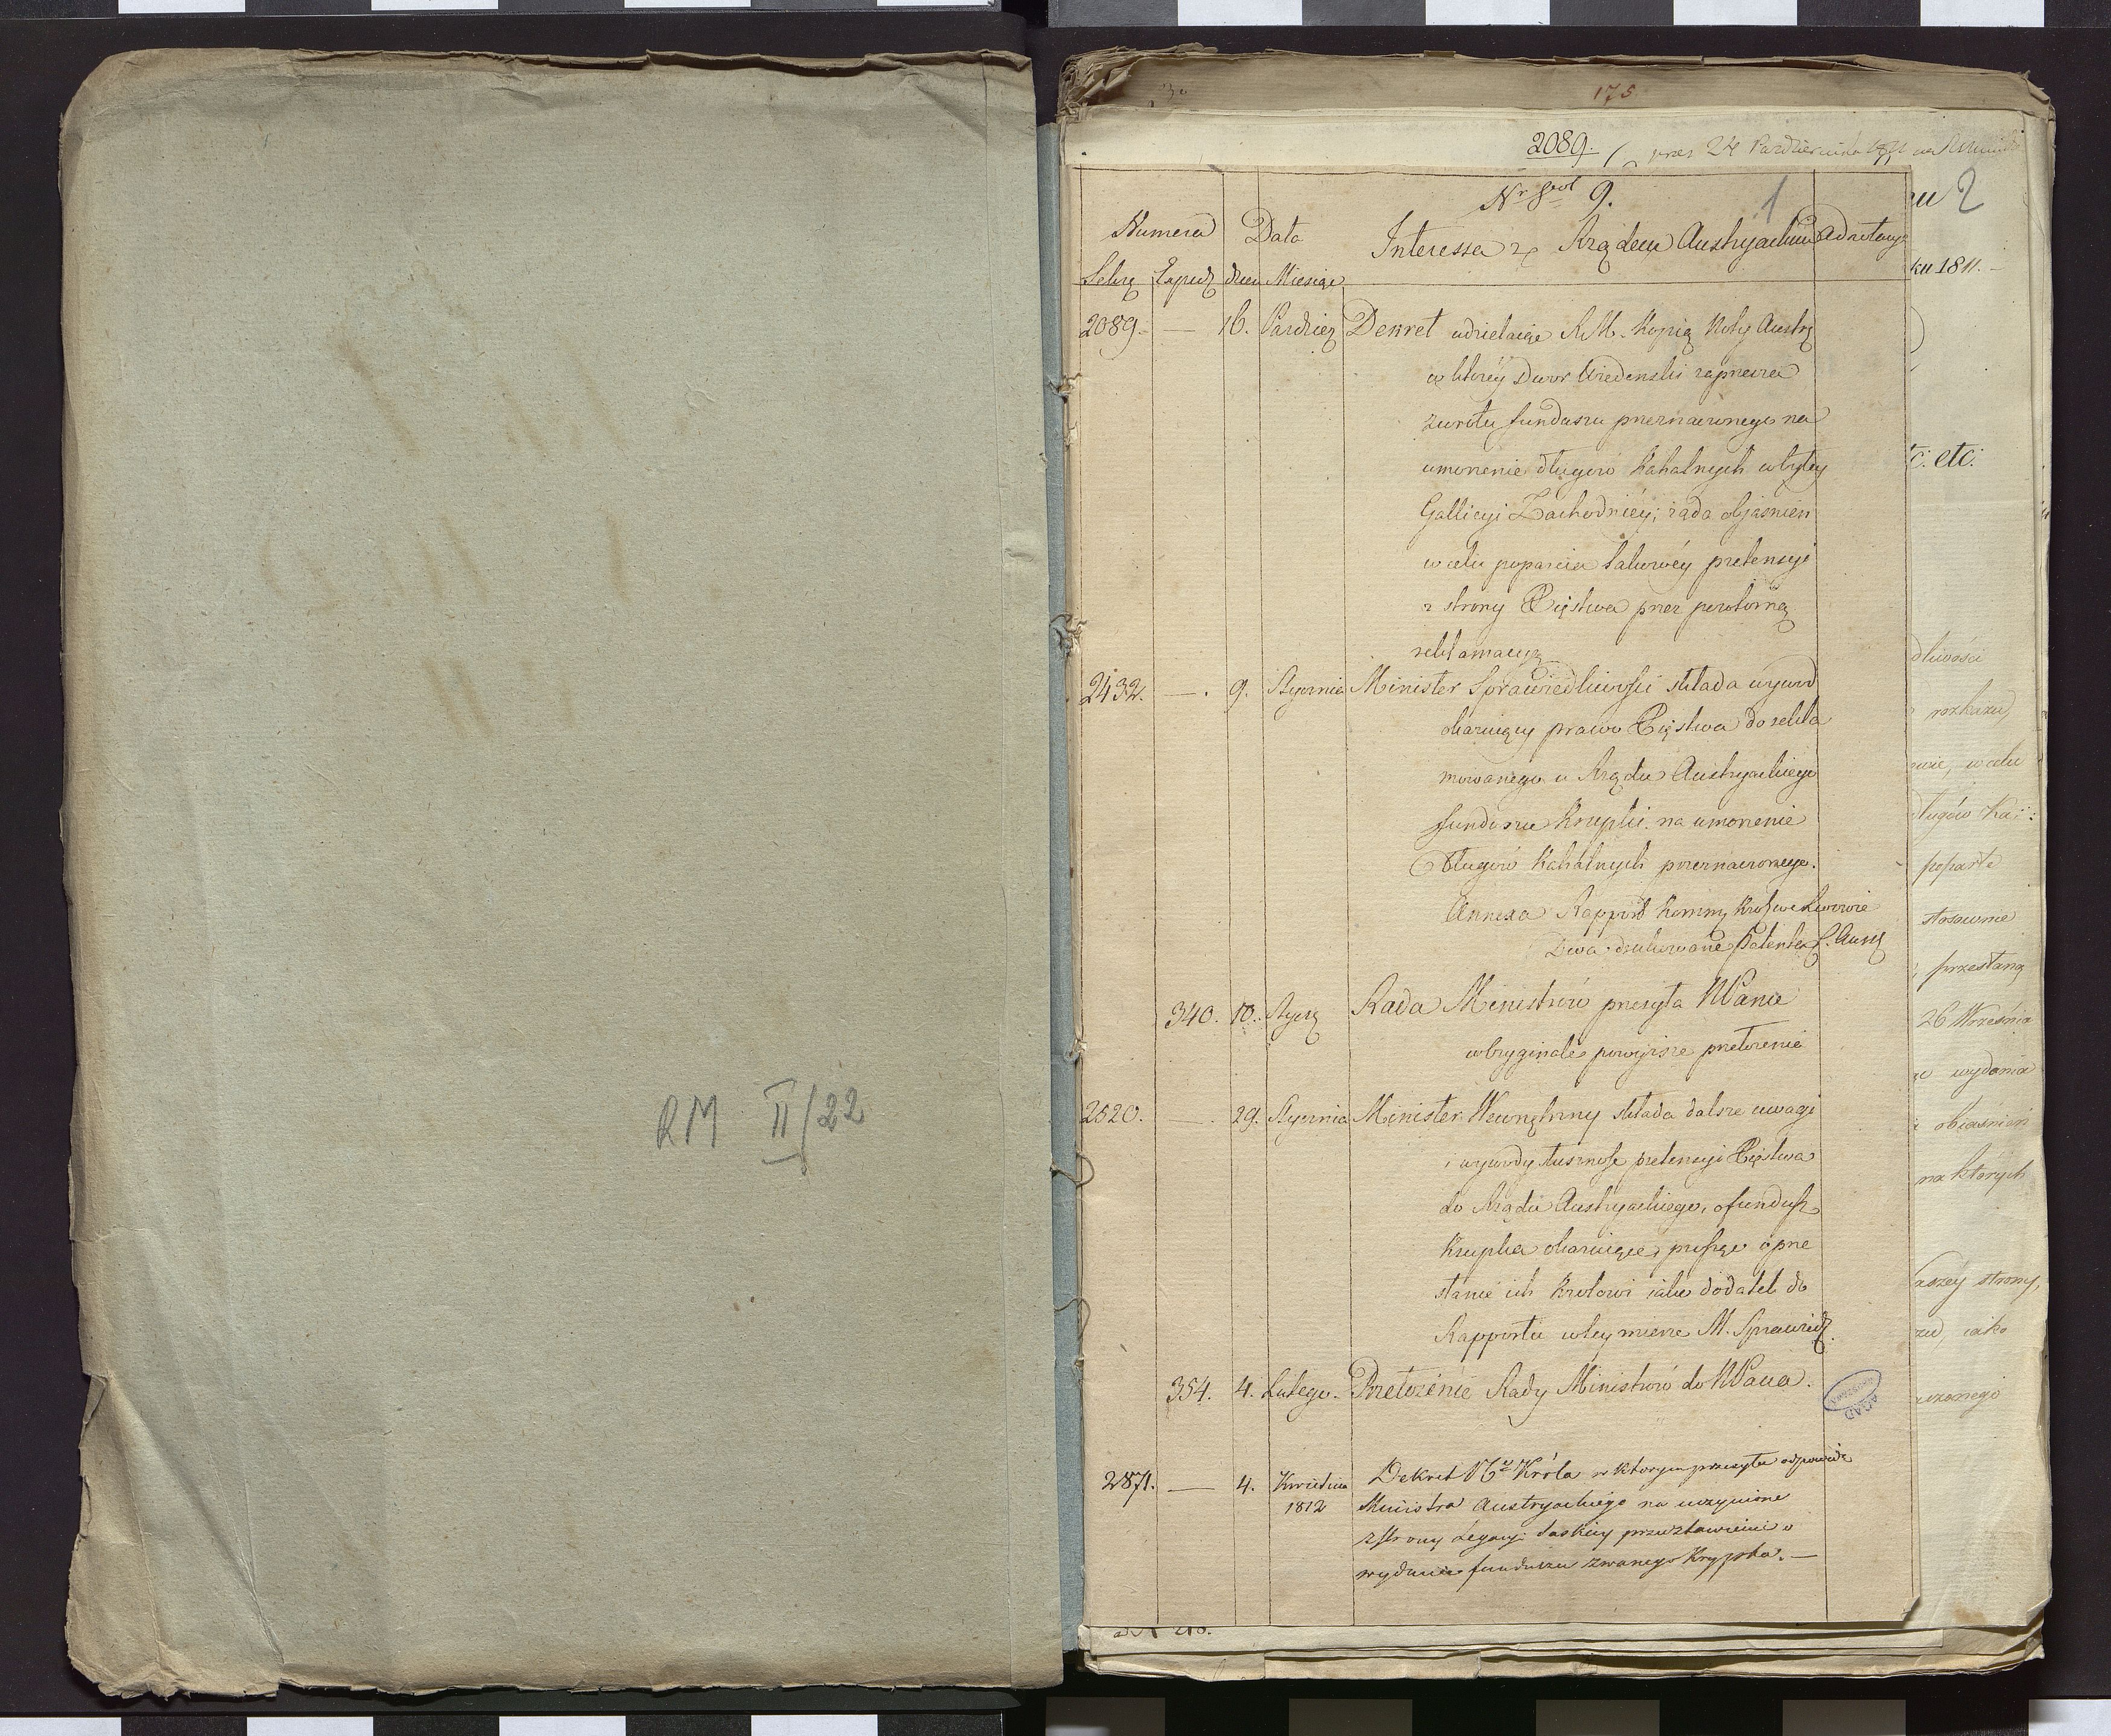 RM II/22
175
2089.
prez 24 Października 1811
Nr 9.
1
2
Numera Data Interessa z Rządem Austryackim Adnotacye
Sekrę Exped dzien Miesiąc
ku 1811.
2089. — 16. Paździer Dekret udzielaiące R.M. Kopią Noty Austr
w którey Dwor Wiedenski zaprzecza
zwrotu funduszu przeznaczonego na
umorzenie długow Kahalnych w byłey
Gallicyi Zachodniéy; żąda objasnien
w celu poparcia takowéy pretensyi
z strony Xięstwa przez powtorną
reklamacyą
2432. — 9. Stycznia Minister Sprawiedliwości składa wywod
okazuiący prawo Xięstwa do rekla
mowanego u Rządu Austryackiego
funduszu Krupki na umorzenie
Długow Kahalnych przeznaczonego.
Annexa Rapport Kommis. we Lwowie
Dwa drukowane Patenta C. Aust
340. 10. Stycz Rada Ministrów przesyła NPanu
w Oryginale powyższe przełożenie
2520. — 29. Stycznia Minister Wewnętrzny składa dalsze uwagi
i wywody słuszność pretensyi Xięstwa
do Rządu Austryackiego, o fundusz
Krupka okazuiące, prosząc o prze
słanie ich Krolowi iako dodatek do
Rapportu w tey mierze M. Sprawied.
354. 4. Lutego. Przełożenie Rady Ministrów do NPana.
2871. — 4. Kwietnia 1812 Dekret Króla w ktorym przesyła odpowiedz
Ministra Austryackiego na uczynione
z strony Legacyi Saskiey przedstawienie o
wydanie funduszu zwanego Krupka. —
AGAD
etc.
dliwości
rozkazu,
w celu
długów Ka:
poparte
stosownie
przesłaną
26 Września
wydania
obiasnień
na których
strony,
iako